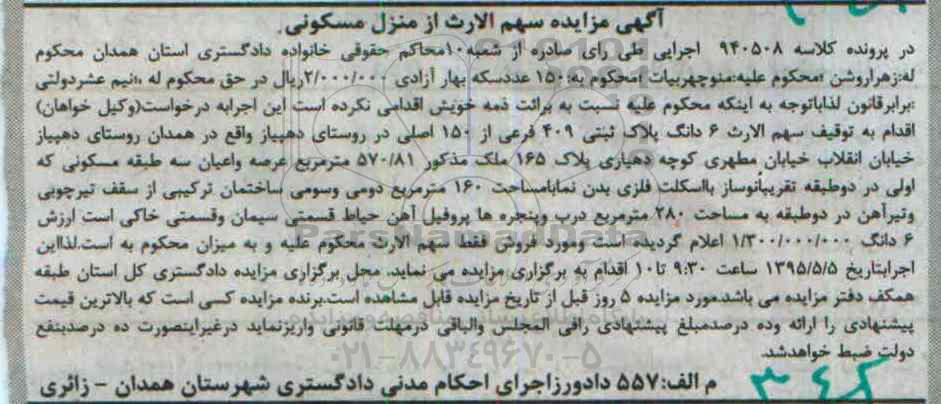 آگهی مزایده سهم الارث از منزل مسکونی
در پرونده کلاسه ۹۴۰۵۰۸ اجرایی طی رای صادره از شعبه۱۰محاکم حقوقی خانواده دادگستری استان همدان محکوم
له:زهراروشن ،محکوم علیه:منوچهربیات ،محکوم به:۱۵۰ عددسکه بهار آزادی ۲/۰۰۰/۰۰۰ریال در حق محکوم له ،،نیم عشردولتی
:برابرقانون لذاباتوجه به اینکه محکوم علیه نسبت به برائت ذمه خویش اقدامی نکرده است این اجرابه درخواست(وکیل خواهان)
اقدام به توقیف سهم الارث ۶ دانگ پلاک ثبتی ۴۰۹ فرعی از ۱۵۰ اصلی در روستای دهپیاز واقع در همدان روستای دهپیاز
خیابان انقلاب خیابان مطهری کوچه دهیاری پلاک ۱۶۵ ملک مذکور ۵۷۰/۸۱ مترمربع عرصه واعیان سه طبقه مسکونی که
اولی در دوطبقه تقریبأنوساز بااسکلت فلزی بدن نمابامساحت ۱۶۰ مترمربع دومی وسومی ساختمان ترکیبی از سقف تیرچوبی
وتیرآهن در دوطبقه به مساحت ۲۸۰ مترمربع درب وپنجره ها پروفیل آهن حیاط قسمتی سیمان وقسمتی خاکی است ارزش
۶ دانگ ۱/۳۰۰/۰۰۰/۰۰۰ اعلام گردیده است ومورد فروش فقط سهم الارث محکوم علیه و به میزان محکوم به است.لذااین
اجرابتاریخ ۱۳۹۵/۵/۵ ساعت ۹:۳۰ تا۱۰ اقدام به برگزاری مزایده می نماید. محل برگزاری مزایده دادگستری کل استان طبقه
همکف دفتر مزایده می باشد.مورد مزایده ۵ روز قبل از تاریخ مزایده قابل مشاهده است.برنده مزایده کسی است که بالاترین قیمت
پیشنهادی را ارائه وده درصدمبلغ پیشنهادی رافی المجلس والباقی درمهلت قانونی واریزنماید درغیراینصورت ده درصدبنفع
دولت ضبط خواهدشد.
م الف:۵۵۷ دادورزاجرای احکام مدنی دادگستری شهرستان همدان - زائری
ParsNamadData
۰۲۱-۸۸۳۴۹۶۷۰-۵